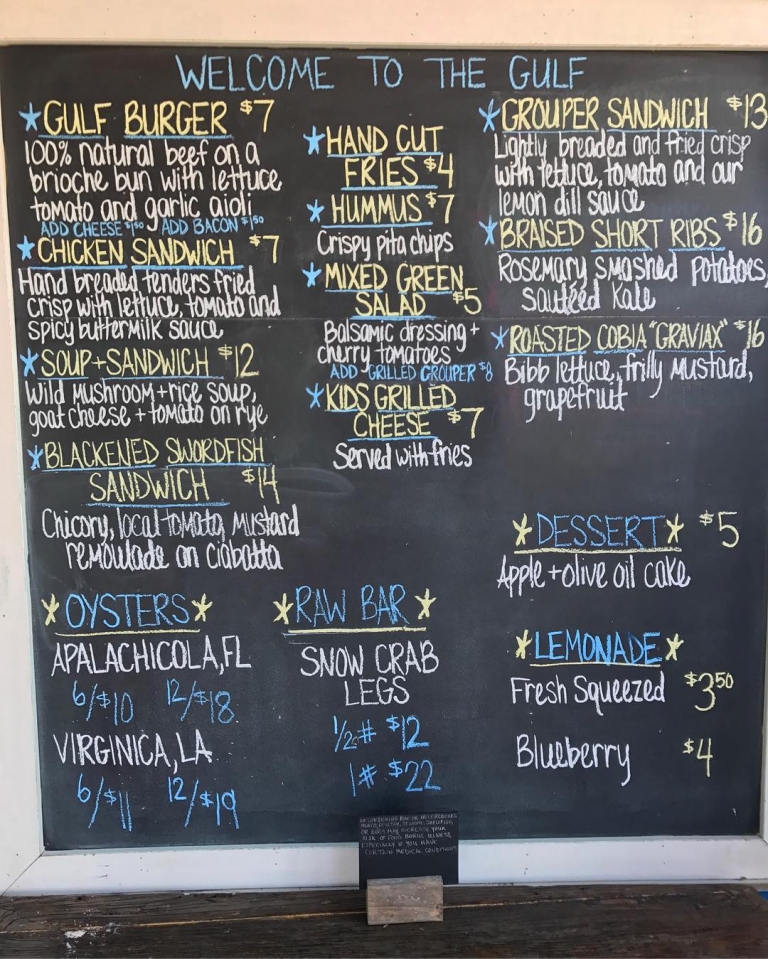 WELCOME TO THE GULF
GULF BURGER $7
100% natural beef on a
brioche bun with lettuce
tomato and garlic aioli
ADD CHEESE $1.50 ADD BACON $1.50
CHICKEN SANDWICH $7
Hand breaded tenders fried
crisp with lettuce, tomato and
spicy buttermilk sauce
SOUP+SANDWICH $12
Wild mushroom+rice soup,
goat cheese + tomato on rye
BLACKENED SWORDFISH
SANDWICH $14
Chicory, local tomato, mustard
remoulade on ciabatta
HAND CUT
FRIES $4
HUMMUS $7
Crispy pita chips
MIXED GREEN
SALAD $5
Balsamic dressing +
cherry tomatoes
ADD GRILLED GROUPER $8
KIDS GRILLED
CHEESE $7
Served with fries
GROUPER SANDWICH $13
Lightly breaded and fried crisp
with lettuce, tomato and our
lemon dill sauce
BRAISED SHORT RIBS $16
Rosemary smashed potatoes,
sautéed kale
ROASTED COBIA "GRAVLAX" $16
Bibb lettuce, frilly mustard,
grapefruit
DESSERT $5
Apple+olive oil cake
LEMONADE
Fresh Squeezed $3.50
Blueberry $4
OYSTERS
APALACHICOLA, FL
6/$10 12/$18
VIRGINICA, LA
6/$11 12/$19
RAW BAR
SNOW CRAB
LEGS
1/2# $12
1# $22
RAW OR UNDERCOOKED
OR EGGS MAY INCREASE YOUR
RISK OF FOOD BORNE ILLNESS,
ESPECIALLY IF YOU HAVE
CERTAIN MEDICAL CONDITIONS